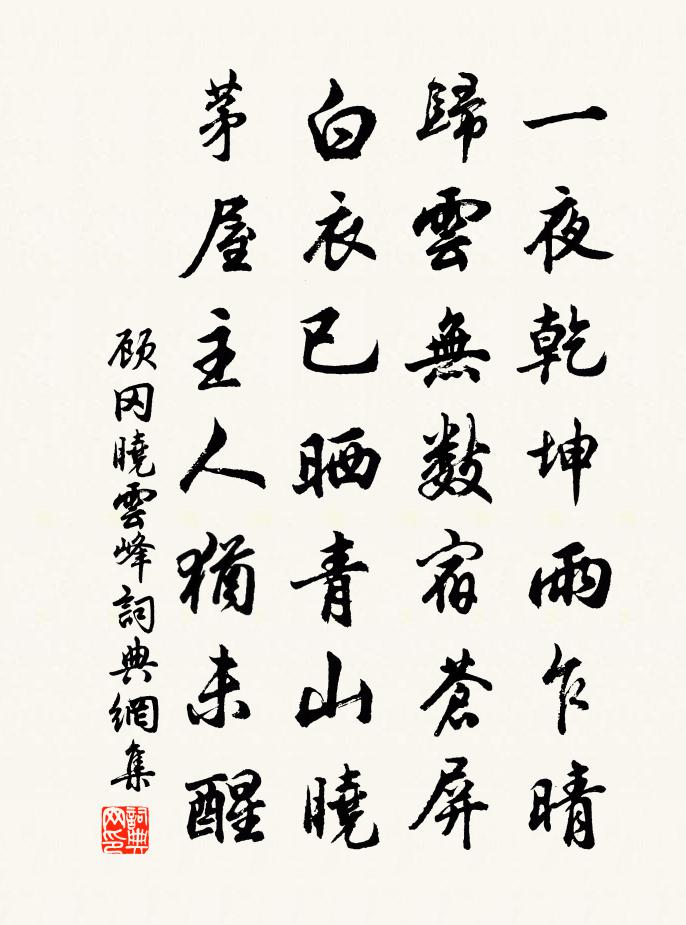 一夜乾坤雨乍晴
歸雲無數宿蒼屏
白衣已晒青山曉
茅屋主人猶未醒
顾冈曉雲峰詞典網集
詞典
网印